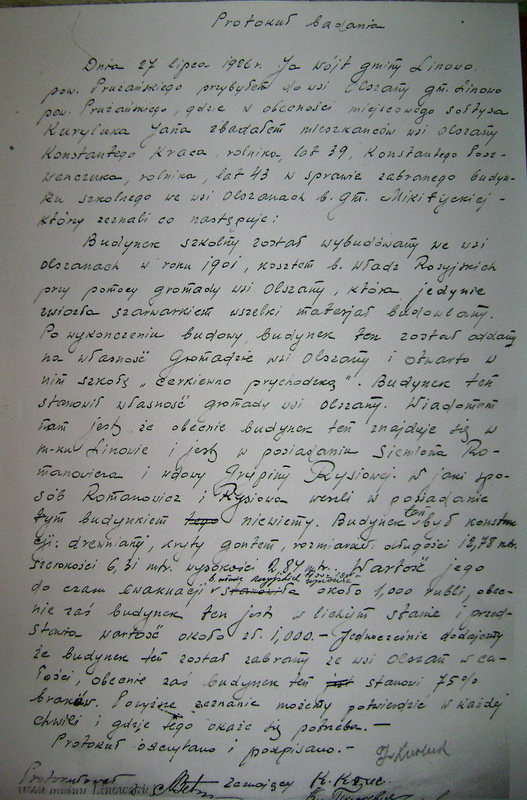 Protokuł badania
Dnia 27 lipca 1926r. Ja wójt gminy Linowo
pow. Prużańskiego przybyłem do wsi Olszany gm. Linowo
pow. Prużańskiego, gdzie w obecności miejscowego sołtysa
Kuryluka Jana zbadałem mieszkańców wsi Olszany
Konstantego Kraca, rolnika, lat 39, Konstantego
rolnika, lat 43 w sprawie zabranego budyn-
ku szkolnego we wsi Olszanach b. gm. Mikityckiej -
który zeznali co następuje:
Budynek szkolny został wybudowany we wsi
Olszanach w roku 1901, kosztem b. Władz Rosyjskich
przy pomocy gromady wsi Olszany, która jedynie
zwiozła szarwarkiem wszelki materjał budowlany.
Po wykonczeniu budowy, budynek ten został oddany
na własność Gromadzie wsi Olszany i otwarto w
nim szkołę „cerkienno prychodzką". Budynek ten
stanowił własność gromady wsi Olszany. Wiadomem
nam jest, że obecnie budynek ten znajduje się w
m-ku Linowie i jest w posiadaniu Siemiona Ro-
manowicza i wdowy Grypiny Rysiowej. W jaki spo-
sób Romanowicz i Rysiowa weszli w posiadanie
tym budynkiem tego niewiemy. Budynek ten był konstruk-
cji: drewniany, kryty gontem, rozmiarów: długości 12,78 mtr.
szerokości 6,31 mtr. wysokości 2,84 mtr. Wartość jego
do czasu ewakuacji około 1,000 rubli, obec-
nie zaś budynek ten jest w lichym stanie i przed-
stawia wartość około zł. 1,000.- Jednocześnie dodajemy
że budynek ten został zabrany ze wsi Olszan w ca-
łości, obecnie zaś budynek ten jest stanowi 75%
braków. Powyższe zeznanie możemy potwierdzić w każdej
chwili i gdzie tego okaże się potrzeba.-
Protokuł odczytano i podpisano.-
Protokułował zeznający K. Krac.